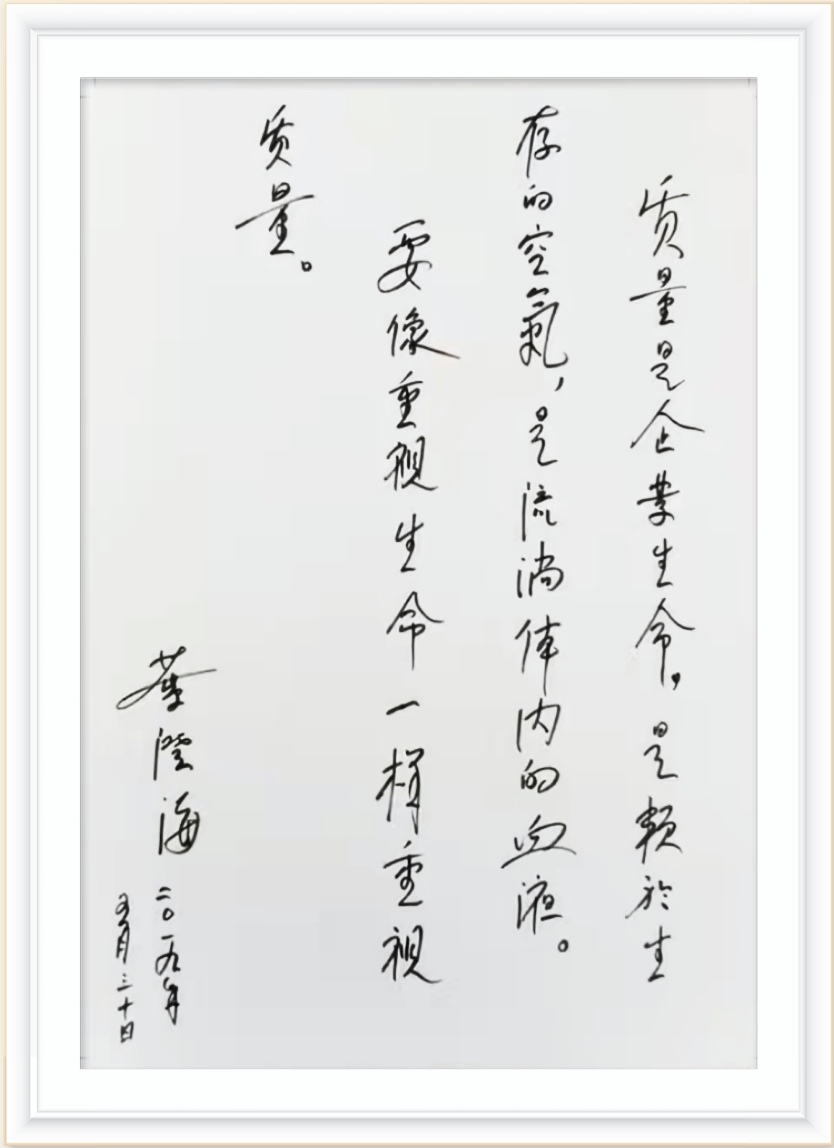 质量是企業生命，是赖於生
存的空氣，是流淌体内的血液。
要像重视生命一樣重视
质量。
葉澄海
二〇一九年
五月三十日